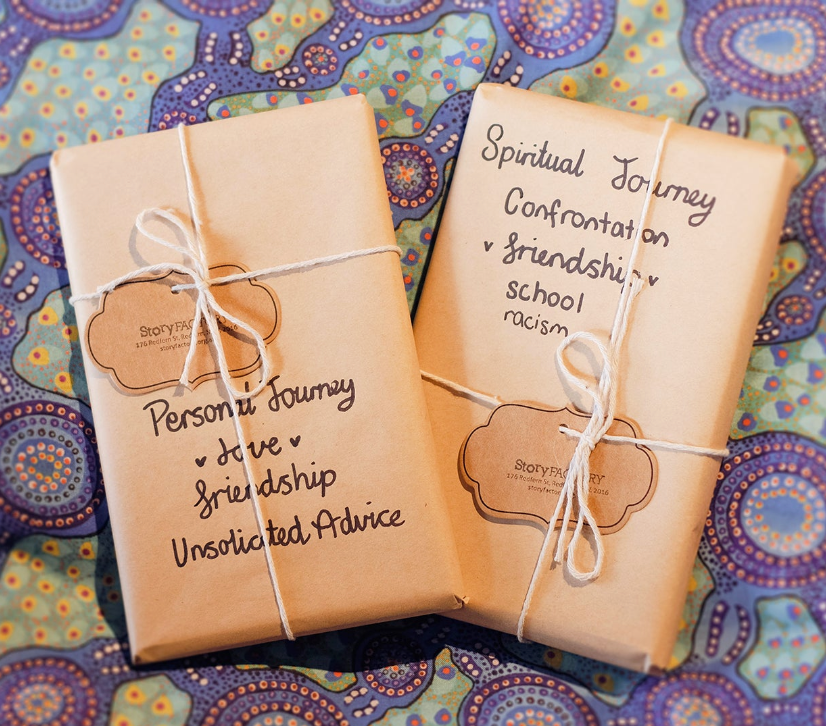 StoryFACTORY
176 Redfern St, Redfern 2016
storyfactory
Personal Journey
Love
friendship
Unsolicated Advice
Spiritual Journey
Confrontation
friendship
school
racism
StoryFACTORY
176 Redfern St, 2016
storyfactory